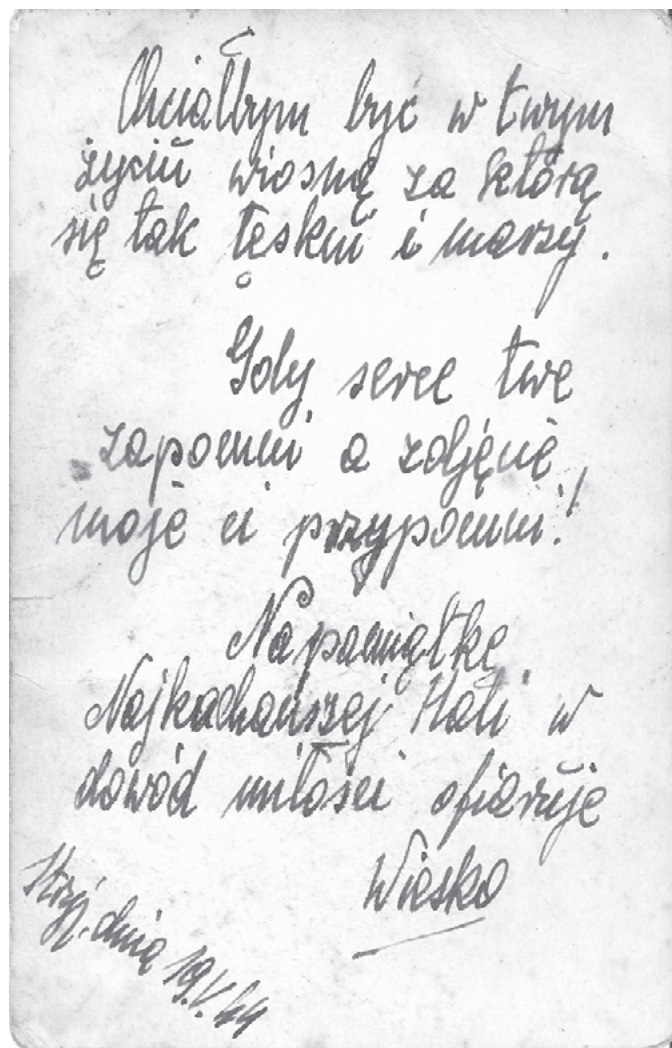 Chciałbym być w twym
życiu wiosną za którą
się tak tęskni i marzy.
Gdy serce twe
zapomni a zdjęcie
moje ci przypomni!
Na pamiątkę
Najkochańszej Hali w
dowód miłości ofiaruje
Wieśko
Stryj, dnia 19.V.44